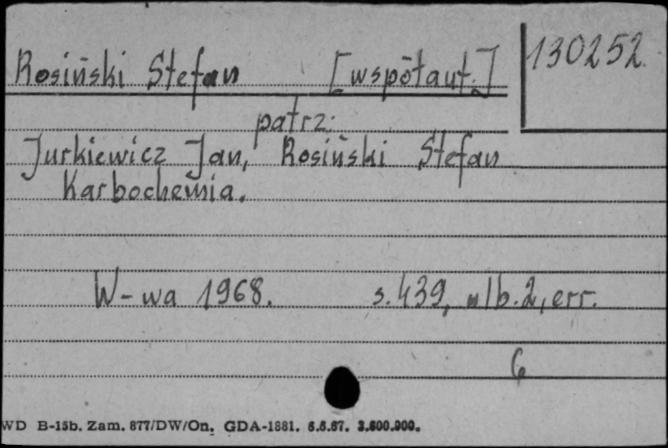 130252
Rosiński Stefan [współaut.]
patrz:
Jurkiewicz Jan, Rosiński Stefan
Karbochemia.
W-wa 1968. s. 439, nlb. 2, err.
6
WD B-15b. Zam. 877/DW/On. GDA-1881. 6.6.67. 3.600.000.